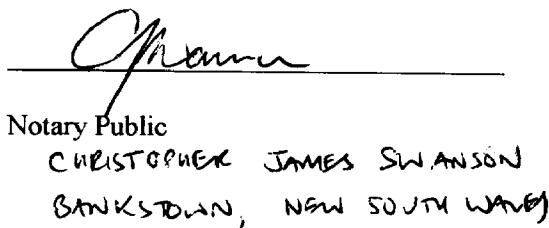 Notary Public
CHRISTOPHER JAMES SWANSON
BANKSTOWN, NEW SOUTH WALES